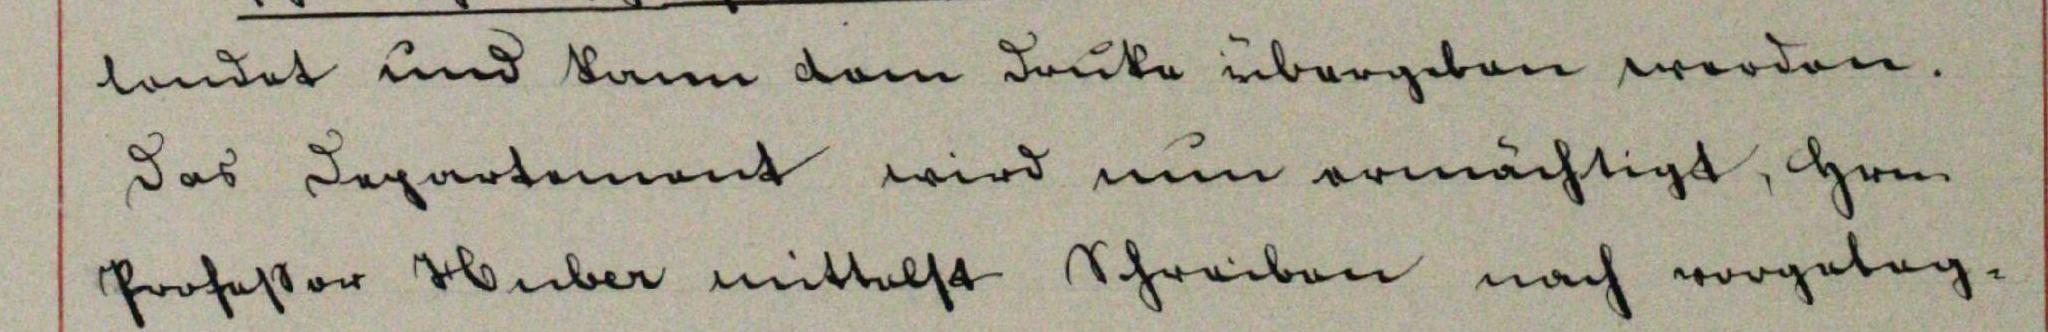 lendet und kann dem Druke übergeben werden.
Das Departement wird nun ermächtigt, Hrn.
Professor Huber mittelst Schreiben nach vorgeleg-